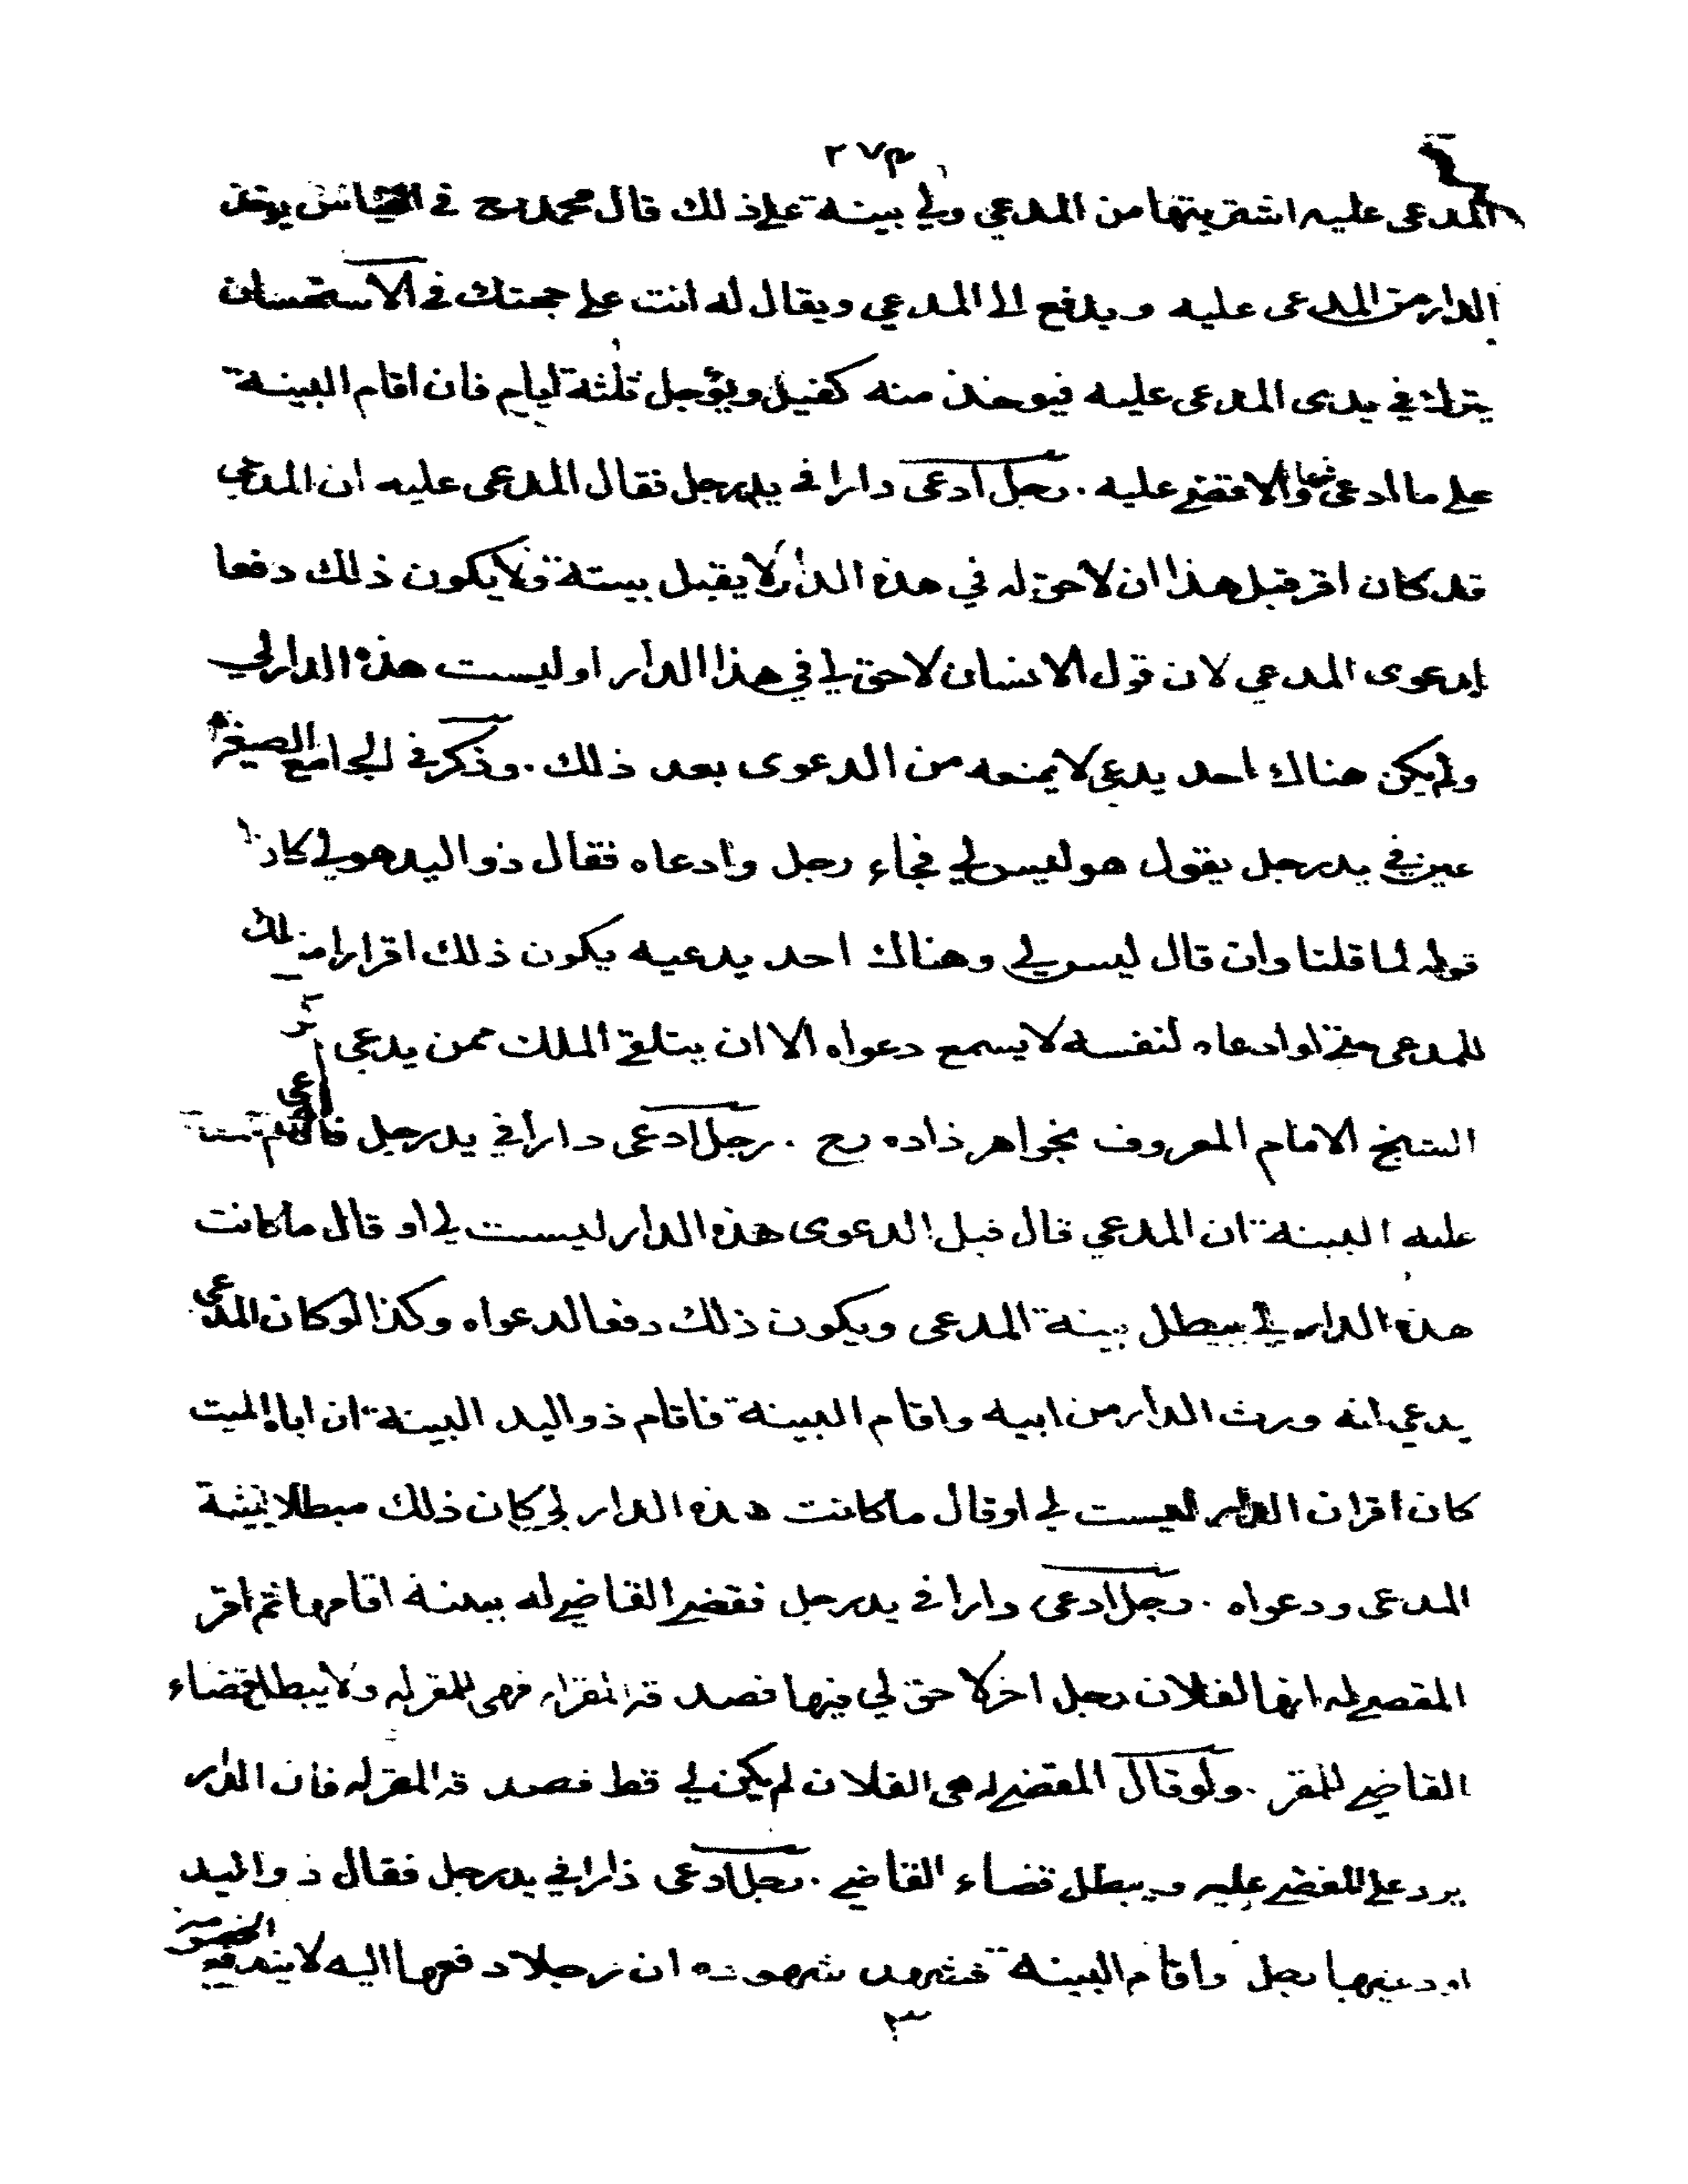 ٢٧٣
المدعى عليه اشتريتها من المدعي ولي بينة على ذلك قال محمد رح في القياس يوخذ
الدار من المدعى عليه ويدفع الى المدعي ويقال له انت على حجتك في الاستحسان
يترك في يدى المدعى عليه فيوخذ منه كفيل ويؤجل ثلثة ايام فان اقام البينة
على ما ادعى والا قضى عليه . رجل ادعى دارا في يد رجل فقال المدعى عليه ان المدعي
قد كان اقر قبل هذا ان لا حق له في هذه الدار لا يقبل بينته ولا يكون ذلك دفعا
لدعوى المدعي لان قول الانسان لا حق لي في هذا الدار او ليست هذه الدار لي
ولم يكن هناك احد يدعي لا يمنعه من الدعوى بعد ذلك . وذكر في الجامع الصغير
عين في يد رجل يقول هو ليس لي فجاء رجل وادعاه فقال ذو اليد هو لي كان
قوله لما قلنا وان قال ليس لي وهناك احد يدعيه يكون ذلك اقرارا منه بالملك
للمدعى حتى لو ادعاه لنفسه لا يسمع دعواه الا ان يتلقى الملك ممن يدعى
الشيخ الامام المعروف بخواهر زاده رح . رجل ادعى دارا في يد رجل فاقام
عليه البينة ان المدعي قال قبل الدعوى هذه الدار ليست لي او قال ما كانت
هذه الدار لي يبطل بينة المدعى ويكون ذلك دفعا لدعواه وكذا لو كان المدعى
يدعي انه ورث الدار من ابيه واقام البينة فاقام ذو اليد البينة ان اباه الميت
كان اقر ان الدار ليست لي او قال ما كانت هذه الدار لي كان ذلك مبطلا لبينة
المدعى ودعواه . رجل ادعى دارا في يد رجل فقضى القاضي له ببينة اقامها ثم اقر
المقضى له انها لفلان رجل اخر لا حق لي فيها فصدقه المقر له فهى للمقر له ولا يبطل قضاء
القاضي للمقر . ولو قال المقضى له هى الفلان لم يكن لي قط فصدقه المقر له فان الدار
يرد على المقضى عليه ويبطل قضاء القاضي . رجل ادعى دارا في يد رجل فقال ذو اليد
اودعنيها رجل واقام البينة فشهد شهوده ان رجلا دفعها اليه لا يندفع الخصومة
٣